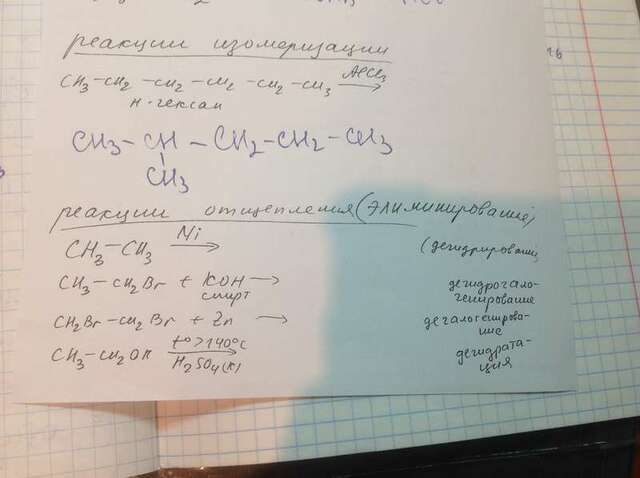 реакции изомеризации
CH3-CH2-CH2-CH2-CH2-CH3 AlCl3→
н-гексан
CH3-CH-CH2-CH2-CH3
CH3
реакции отщепления (элиминирование)
CH3-CH3 Ni→ (дегидрирование)
CH3-CH2Br + KOH → дегидрогало-
спирт генирование
CH2Br-CH2Br + Zn → дегалогениро-
вание
CH3-CH2OH t°>140°C дегидрата-
H2SO4(к) ция